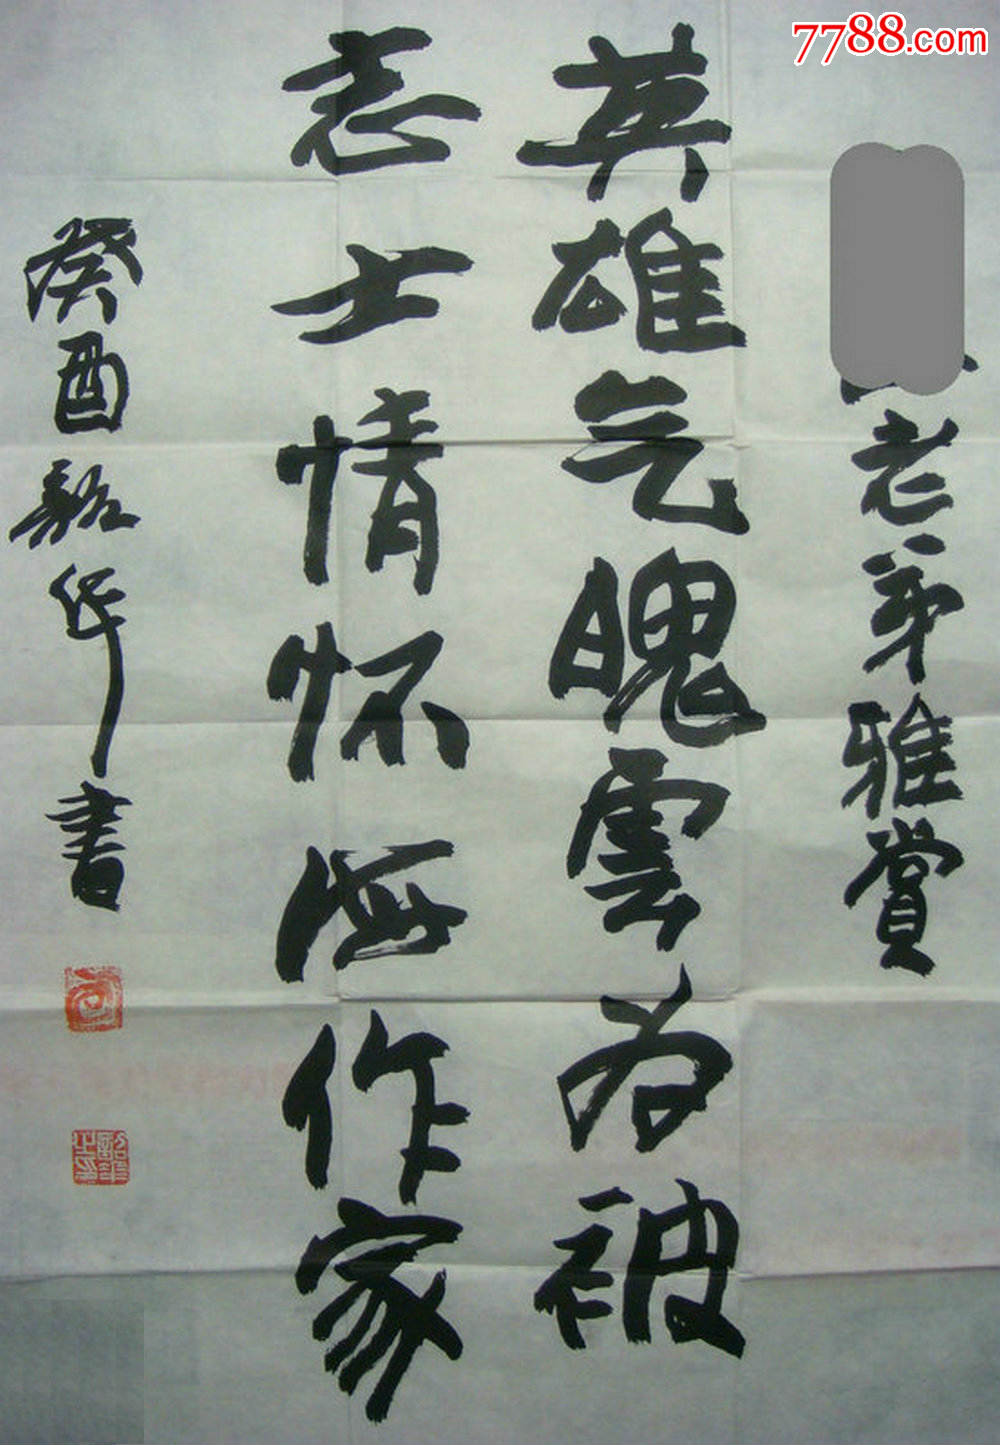 7788.com
老弟雅赏
英雄气魄雲为被
志士情怀海作家
癸酉韶华书